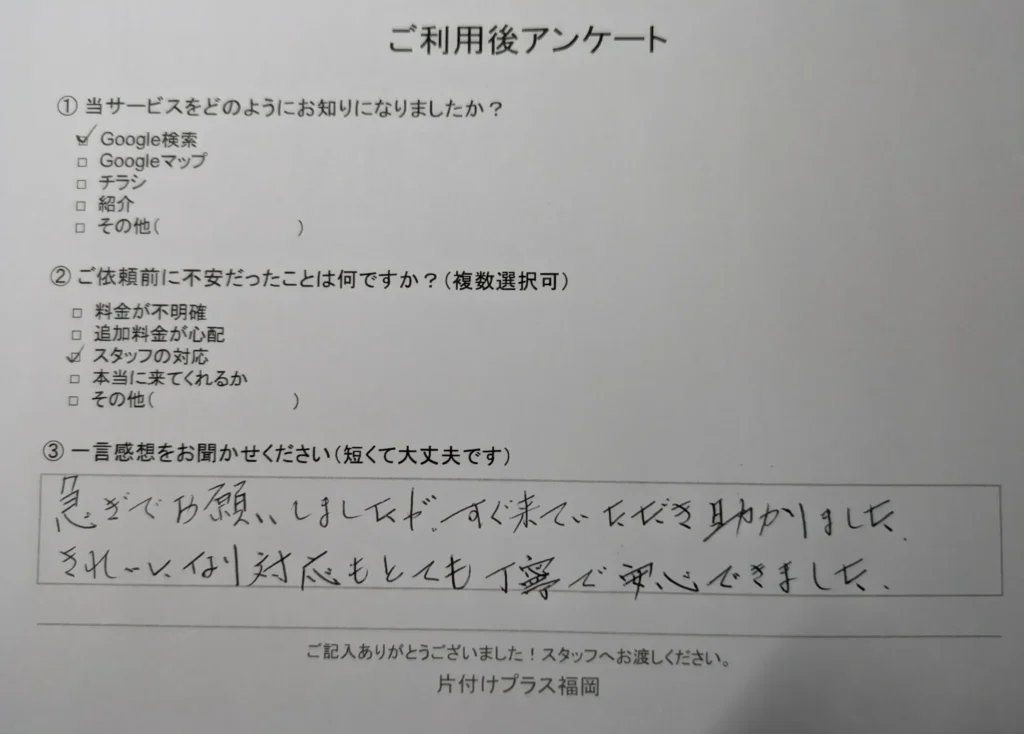 ご利用後アンケート
① 当サービスをどのようにお知りになりましたか？
☑ Google検索
□ Googleマップ
□ チラシ
□ 紹介
□ その他( )
② ご依頼前に不安だったことは何ですか？(複数選択可)
□ 料金が不明確
□ 追加料金が心配
☑ スタッフの対応
□ 本当に来てくれるか
□ その他( )
③ 一言感想をお聞かせください(短くて大丈夫です)
急ぎでお願いしましたが、すぐ来ていただき助かりました。
きれいになり対応もとても丁寧で安心できました。
ご記入ありがとうございました！スタッフへお渡しください。
片付けプラス福岡